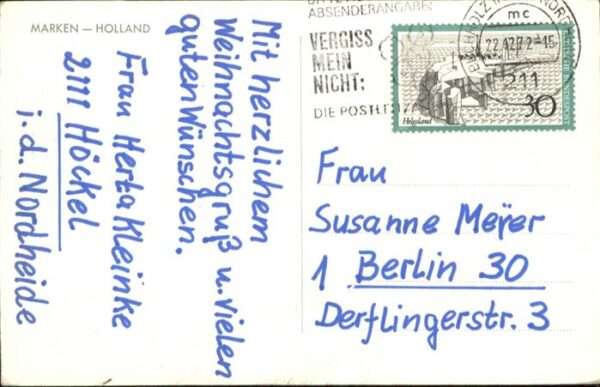 MARKEN – HOLLAND
Mit herzlichem
Weihnachtsgruß u. vielen
guten Wünschen.
Frau Herta Kleinke
2111 Höckel
i. d. Nordheide
ABSENDERANGABE!
VERGISS
MEIN
NICHT:
DIE POSTLEITZ
mc
22.12.72-15
211
Helgoland
30
Frau
Susanne Meyer
1 Berlin 30
Derflingerstr. 3